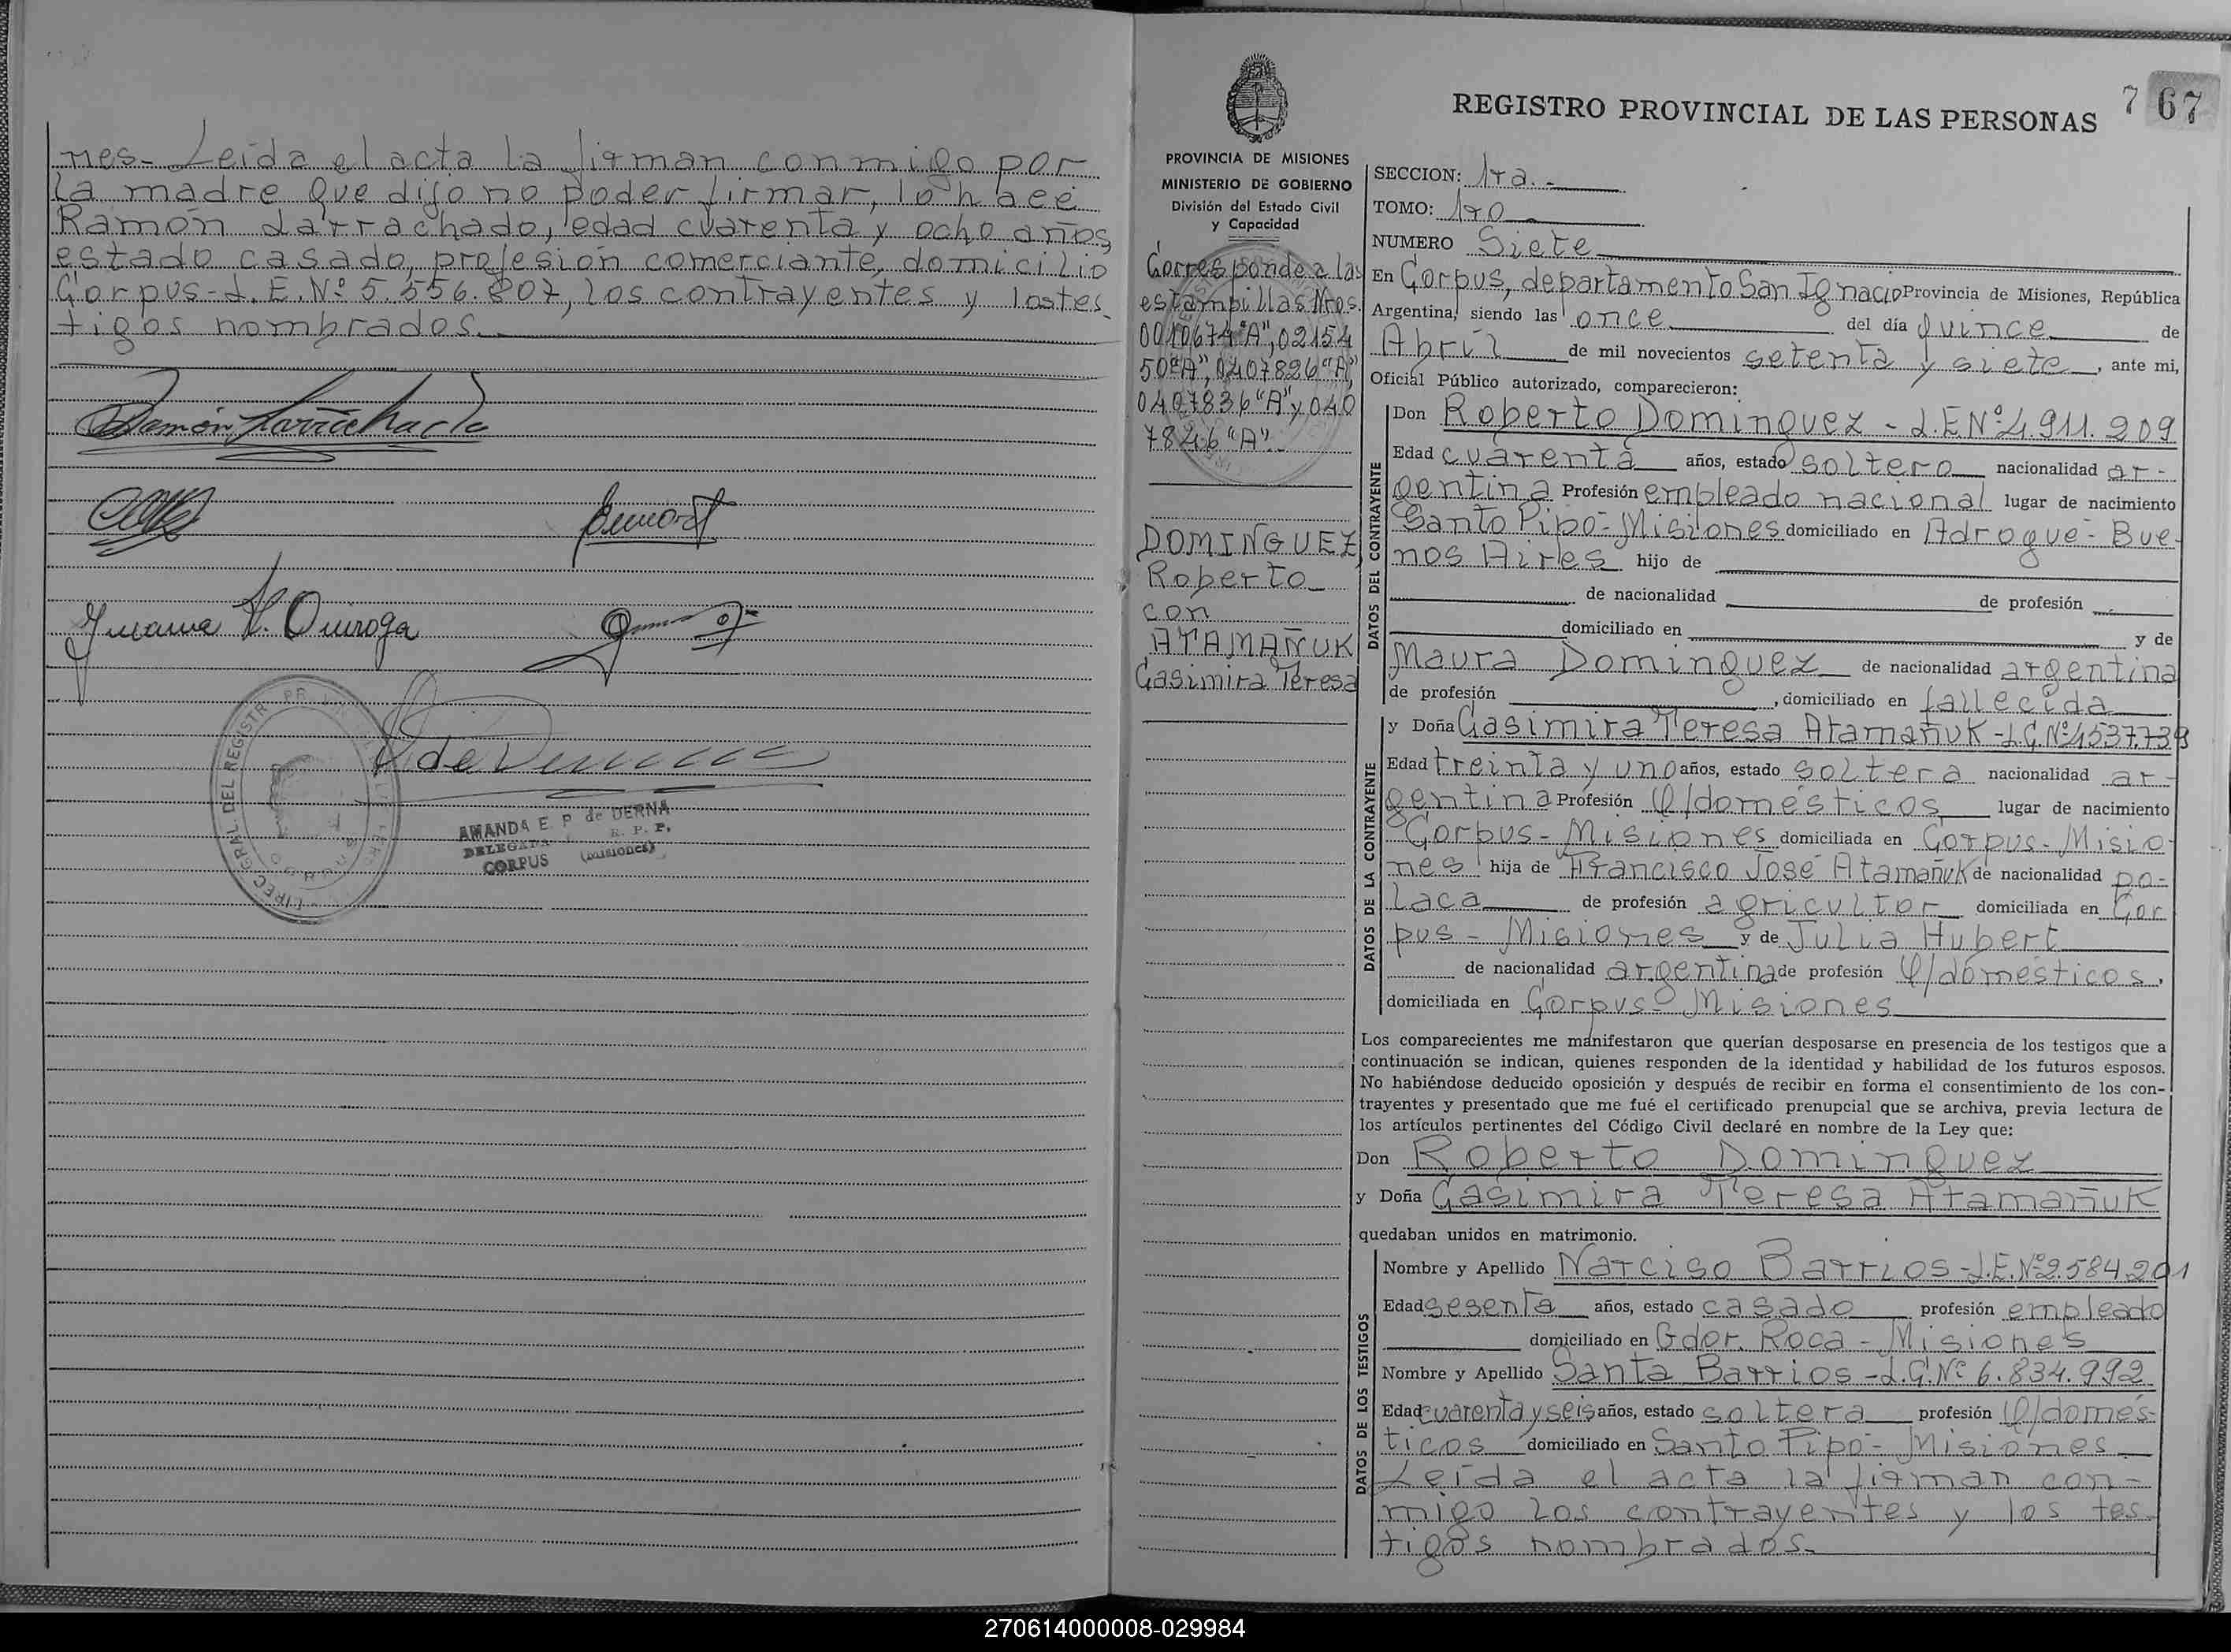 nes- Leída el acta la firman conmigo por
la madre que dijo no poder firmar, lo hace
Ramón Larrachado, edad cuarenta y ocho años,
estado casado, profesión comerciante, domicilio
Corpus- L.E.Nº 5.556.807, los contrayentes y los tes-
tigos nombrados.
AMANDA E. P. de DERNA
DELEGADA R. P. P.
CORPUS (Misiones)
7 67
REGISTRO PROVINCIAL DE LAS PERSONAS
PROVINCIA DE MISIONES
MINISTERIO DE GOBIERNO
División del Estado Civil
y Capacidad
Corresponde a las
estampillas Nros.
0010674"A", 02154
50"A", 0407826"A",
0407836"A" y 040
7846"A".
DOMINGUEZ,
Roberto
con
ATAMAÑUK
Casimira Teresa
SECCION: 1ra.-
TOMO: 1ro
NUMERO Siete
En Corpus, departamento San Ignacio Provincia de Misiones, República
Argentina, siendo las once del día quince de
Abril de mil novecientos setenta y siete, ante mi,
Oficial Público autorizado, comparecieron:
DATOS DEL CONTRAYENTE
Don Roberto Dominguez - L.E.Nº 4.911.209
Edad cuarenta años, estado soltero nacionalidad ar-
gentina Profesión empleado nacional lugar de nacimiento
Santo Pipó- Misiones domiciliado en Adrogué- Bue-
nos Aires hijo de
de nacionalidad de profesión
domiciliado en y de
Maura Dominguez de nacionalidad argentina
de profesión , domiciliado en fallecida
DATOS DE LA CONTRAYENTE
y Doña Casimira Teresa Atamañuk - L.C.Nº 4537.739
Edad treinta y uno años, estado soltera nacionalidad ar-
gentina Profesión Q/domésticos lugar de nacimiento
Corpus- Misiones domiciliada en Corpus- Misio-
nes hija de Francisco José Atamañuk de nacionalidad po-
laca de profesión agricultor domiciliada en Cor
pus - Misiones y de Julia Hubert
de nacionalidad argentina de profesión Q/domésticos,
domiciliada en Corpus- Misiones
Los comparecientes me manifestaron que querían desposarse en presencia de los testigos que a
continuación se indican, quienes responden de la identidad y habilidad de los futuros esposos.
No habiéndose deducido oposición y después de recibir en forma el consentimiento de los con-
trayentes y presentado que me fué el certificado prenupcial que se archiva, previa lectura de
los artículos pertinentes del Código Civil declaré en nombre de la Ley que:
Don Roberto Dominguez
y Doña Casimira Teresa Atamañuk
quedaban unidos en matrimonio.
DATOS DE LOS TESTIGOS
Nombre y Apellido Narciso Barrios - L.E.Nº 2.584.201
Edad sesenta años, estado casado profesión empleado
domiciliado en Gdor. Roca - Misiones
Nombre y Apellido Santa Barrios - L.C.Nº 6.834.992
Edad cuarenta y seis años, estado soltera profesión Q/domés-
ticos domiciliado en Santo Pipó- Misiones
Leída el acta la firman con-
migo los contrayentes y los tes-
tigos nombrados.
270614000008-029984